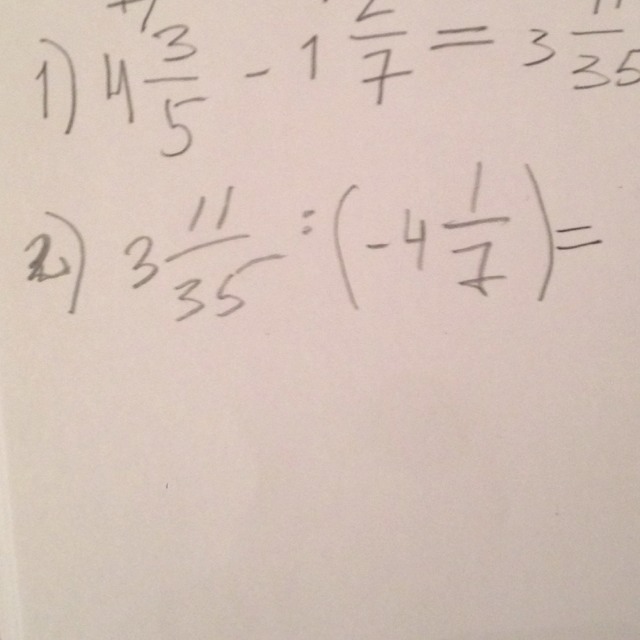 1) 4 3/5 - 1 2/7 = 3 11/35
2) 3 11/35 : (-4 1/7) =